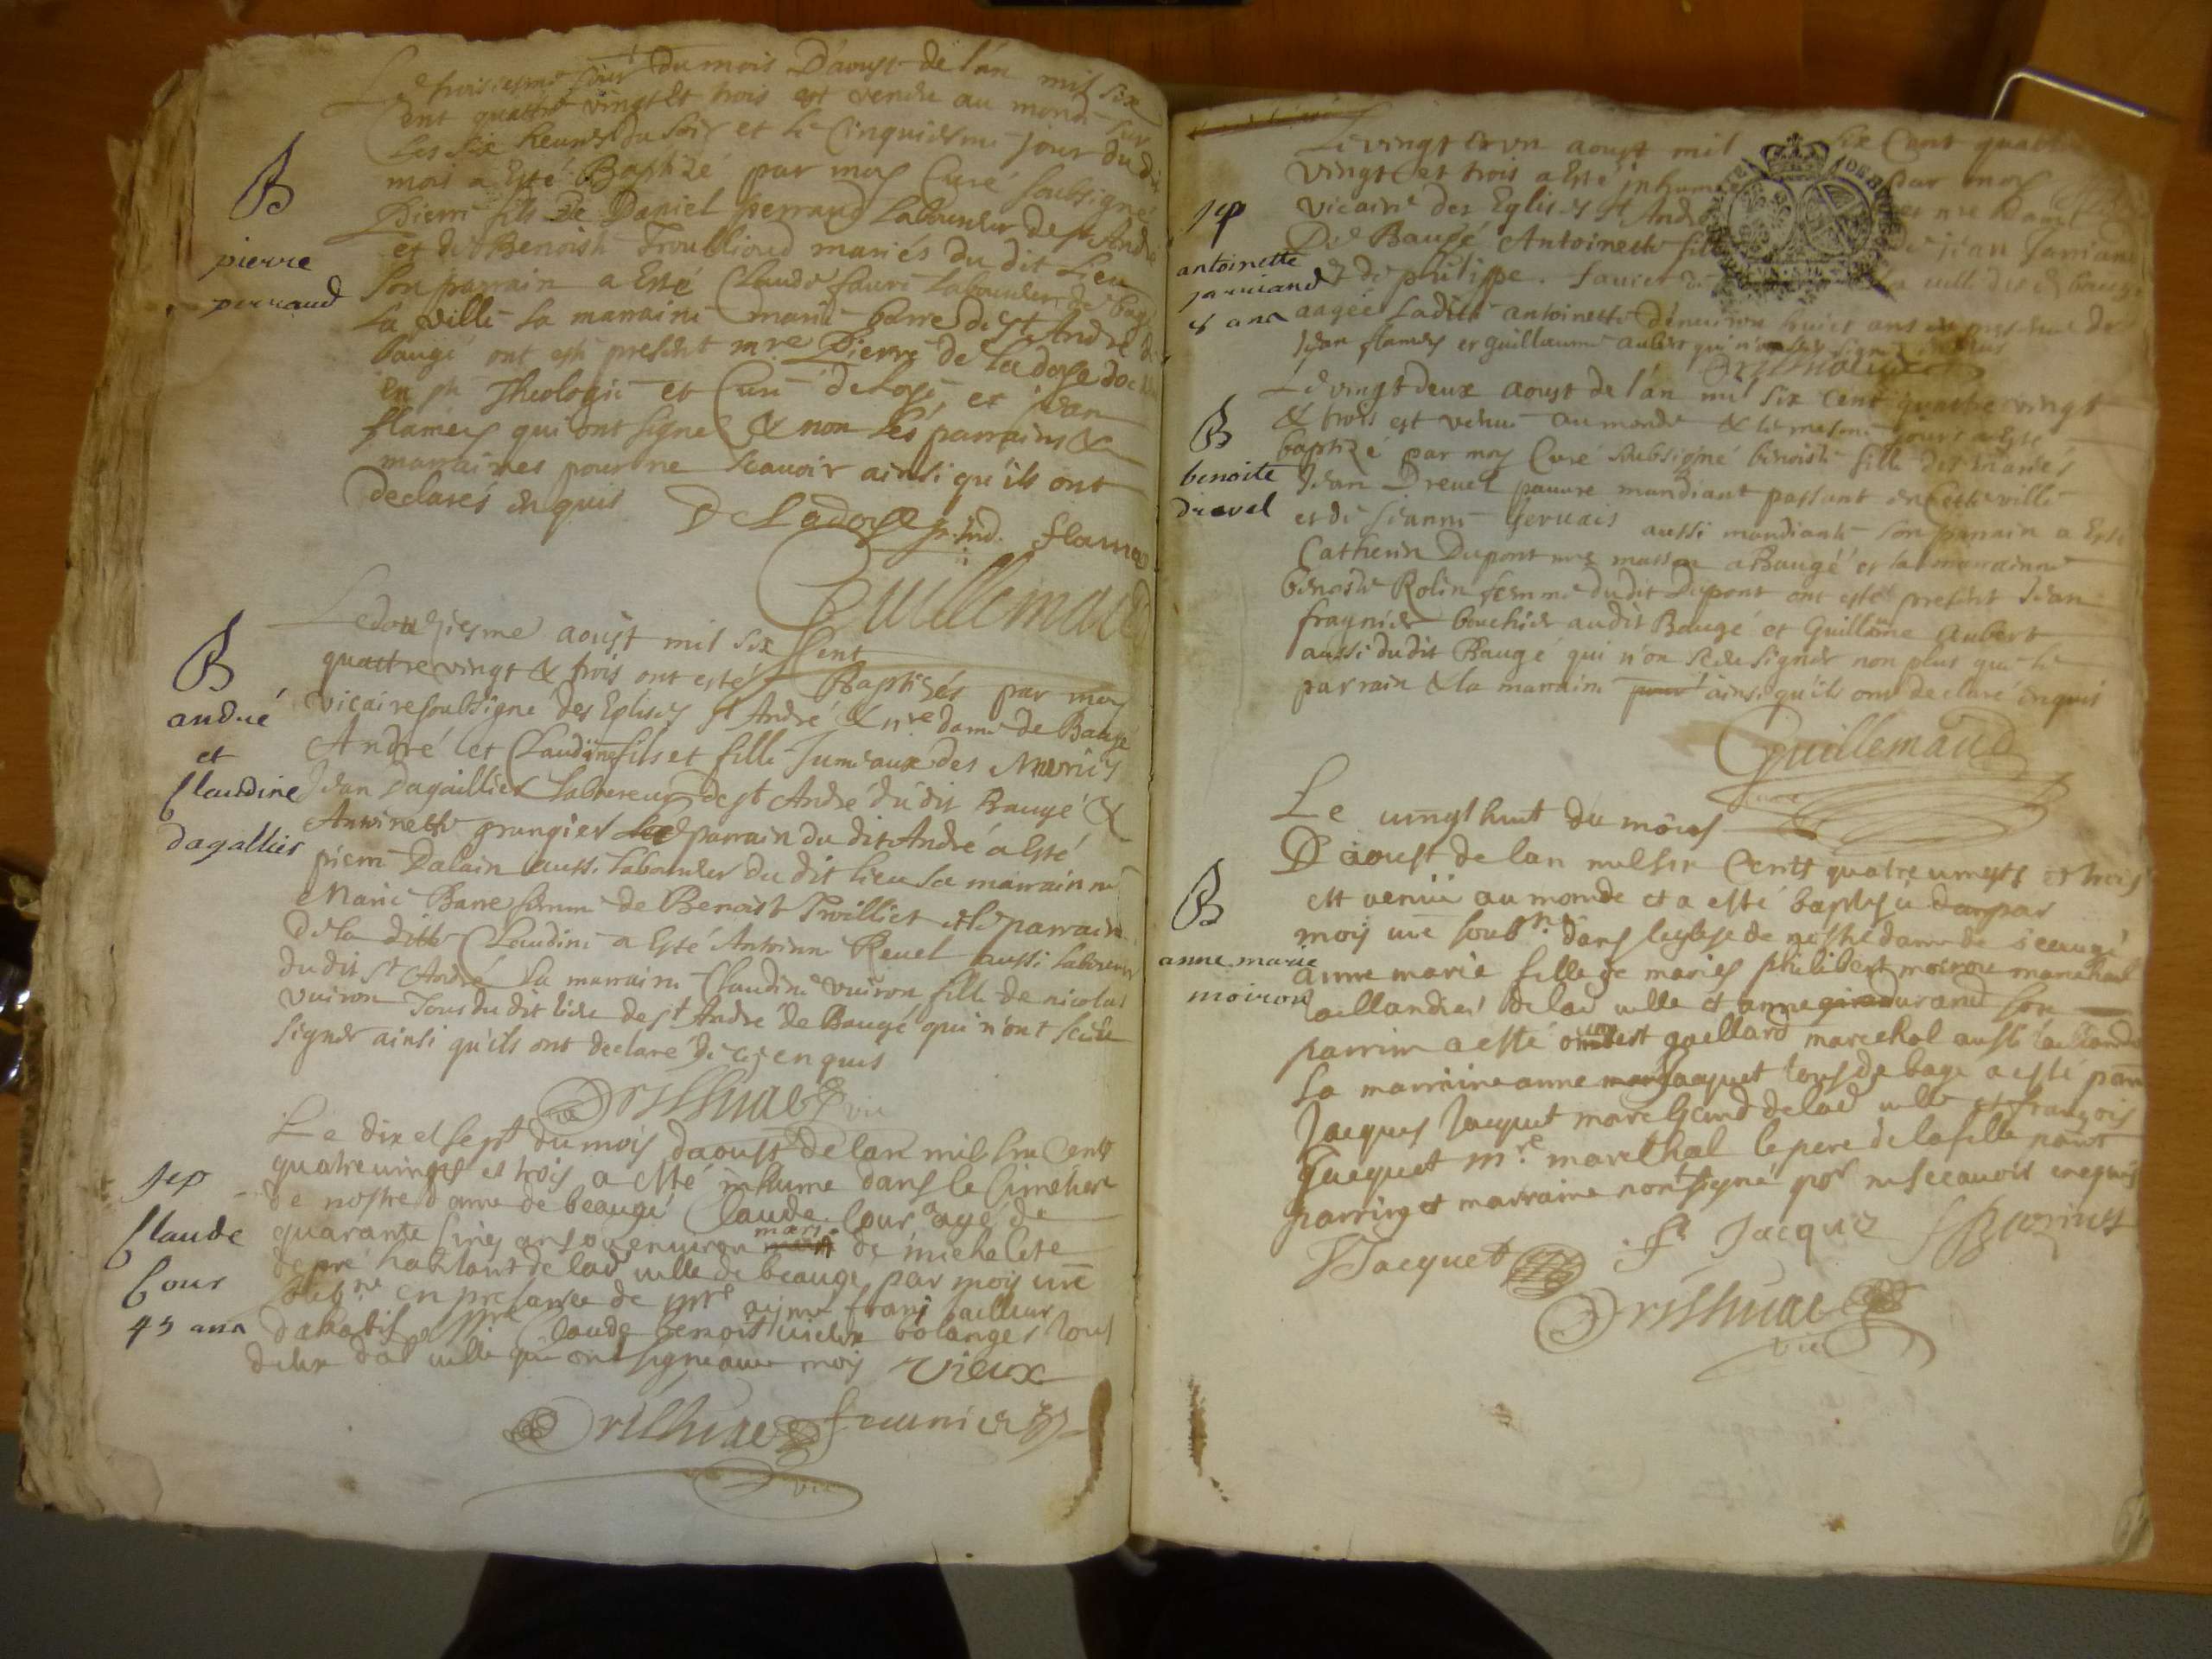 B
pierre
perraud
Le troisiesme jour du mois D'aoust de l'an mil six
Cent quattre vingt et trois est venu au monde sur
les six heures du soir et le Cinquiesme jour du dit
mois a Esté Baptizé par moy Curé soubsigné
Pierre fils de Daniel perraud Laboureur de st André
et de Benoiste Troublioud mariés du dit Lieu
Son parrain a Esté Claude faure Laboureur de bagé
La ville La marraine marie barre de st André de
baugé ont esté present mre Pierre de Ladoye doc
en ste Theologie et Curé de et jean
flameng qui ont signé & non les parrains &
marraines pour ne scauoir ainsi qu'ils ont
declarés enquis De Ladoye flameng
Guillemaud
B
andré
et
Claudine
dagallier
Le douziesme aoust mil six Cent
quattre vingt & trois ont esté Baptisés par moy
vicaire soubsigné des Eglises st André & nre dame de Baugé
André et Claudine fils et fille Jumeaux des Mariés
Jean Dagaillier Laboureur de st André du dit Baugé &
Antoinette grangier Le parrain du dit André a Esté
pierre Dalain aussi Laboureur du dit lieu Sa marraine
Marie Barre femme de Benoist Trvilliet et le parrain
De la ditte Claudine a Esté Antoine Reuel aussi Laboureur
du dit st André La marraine Claudine vuiron fille de nicolas
vuiron Tous du dit lieu de st André de Baugé qui n'ont sceu
signer ainsi qu'ils ont declaré de ce enquis
vic
sep
Claude
Cour
45 ans
Le dix et sept du mois daoust de lan mil six Cents
quatre uingts et trois a esté inhume dans le Cimetiere
de nostre dame de beaugé Claude Cour agé de
quarante Cinq ans ou enuiron mary de michelete
depré habitant de lad uille de beaugé par moy vic
soubne en presance de mre aimé franj tailleur
dhabits mre Claude benoist uieux bolanger tous
deux dud uille qui ont signé auec moy vieux
vic
sep
antoinette
jarriand
8 ans
Le vingt et vn aoust mil six Cent quattre
vingt et trois a Esté inhumée par moy
vicaire des Eglises st André et nre Dame
De Baugé Antoinette fille de jean Jarriand
& de philippe. faurier de la ville de baugé
aagée Ladite antoinette d'enuiron huict ans en presence de
Jean flameng et guillaume aubert
B
benoite
drevel
Le vingt deux aoust de l'an mil six cent quattre vingt
& trois est venue au monde & le mesme jour a Esté
baptizé par moy Curé soubsigné benoiste fille des mariés
Jean Dreuel pauure mandiant passant en Ceste ville
et de jeanne Geruais aussi mandiante son parrain a Esté
Catherin Dupont mre masson a Baugé et la marraine
benoiste Rolin femme du dit Dupont ont esté present Jean
fragnier bouchier au dit Baugé et Guillaume aubert
aussi du dit Baugé qui n'on sceu signer non plus que le
parrain & la marraine pour ainsi qu'ils ont declaré enquis
Guillemaud
B
anne marie
moiron
Le uingt huit du mois
D'aoust de lan mil six Cents quatre uingts et trois
est venüe au monde et a esté baptisée par
moy vic soubne dans leglise de nostre dame de beaugé
anne marie fille de mariés philibert moiron marechal
taillandier de lad uille et anne durand son
parrin a esté gaillard marechal aussi taillandier
La marraine anne Jacquet tous de bage a esté
Jacques Jacquet marchand de lad uille et françois
Jacquet mre marechal le pere de la fille
parring et marraine nont signé por ne scauoir enquis
JJacquet fr Jacquet
vic